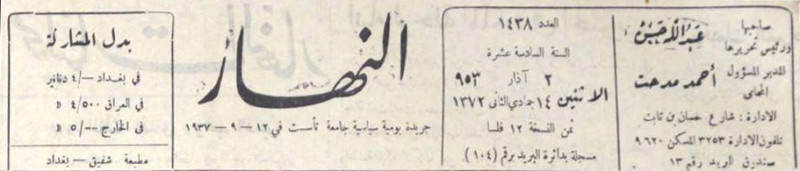 صاحبها
ورئيس تحريرها
عبدالله حسن
المدير المسؤول
أحمد مدحت
المحامي
الادارة : شارع حسان بن ثابت
تلفون الادارة ٣٢٥٣ المسكن ٩٦٢٠
صندوق البريد رقم ١٣
العدد ١٤٣٨
السنة السادسة عشرة
٢ آذار ٩٥٣
الاثنين
١٤ جمادي الثاني ١٣٧٢
ثمن النسخة ١٢ فلسا
مسجلة بدائرة البريد برقم (١٠٤)
النهار
جريدة يومية سياسية جامعة تأست في ١٢ – ٩ – ١٩٣٧
بدل المشاركة
في بغداد —/٤ دنانير
في العراق ٤/٥٠٠ D
في الخارج ٥/٠٠ D
مطبعة شفيق – بغداد